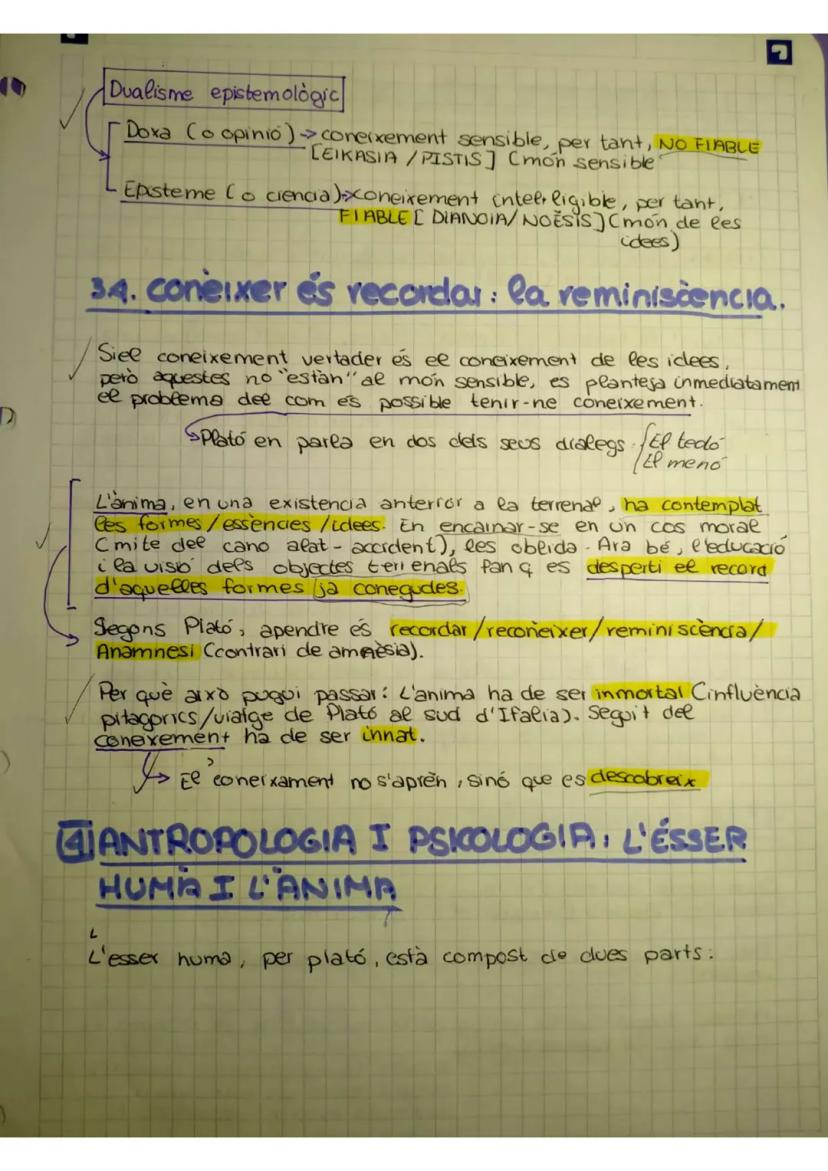 Dualisme epistemològic
Doxa (o opinió) → coneixement sensible, per tant, NO FIABLE
[EIKASIA / PISTIS] (món sensible
Episteme (o ciencia) → coneixement intel·ligible, per tant,
FIABLE [DIANOIA/NOËSIS] (món de les
idees)
3.4. conèixer és recordar: la reminiscència.
Si el coneixement vertader és el coneixement de les idees,
però aquestes no "estàn" al món sensible, es planteja inmediatament
el problema del com és possible tenir-ne coneixement.
Plató en parla en dos dels seus dialegs El fedó
El menó
L'ànima, en una existencia anterior a la terrenal, ha contemplat
les formes/essències/idees. En encarnar-se en un cos moral
(mite del carro alat - accident), les oblida. Ara bé, l'educació
i la visió dels objectes terrenals fan q es desperti el record
d'aquelles formes ja conegudes.
Segons Plató, apendre és recordar/reconeixer/reminiscència/
Anamnesi (contrari de amnèsia).
Per què això pugui passar: L'anima ha de ser inmortal (influència
pitagòrics/viatge de Plató al sud d'Italia). Seguit del
coneixement ha de ser innat.
El coneixament no s'aprèn, sinó que es descobreix
4 ANTROPOLOGIA I PSICOLOGIA: L'ÉSSER
HUMÀ I L'ÀNIMA
L'esser humà, per plató, està compost de dues parts: